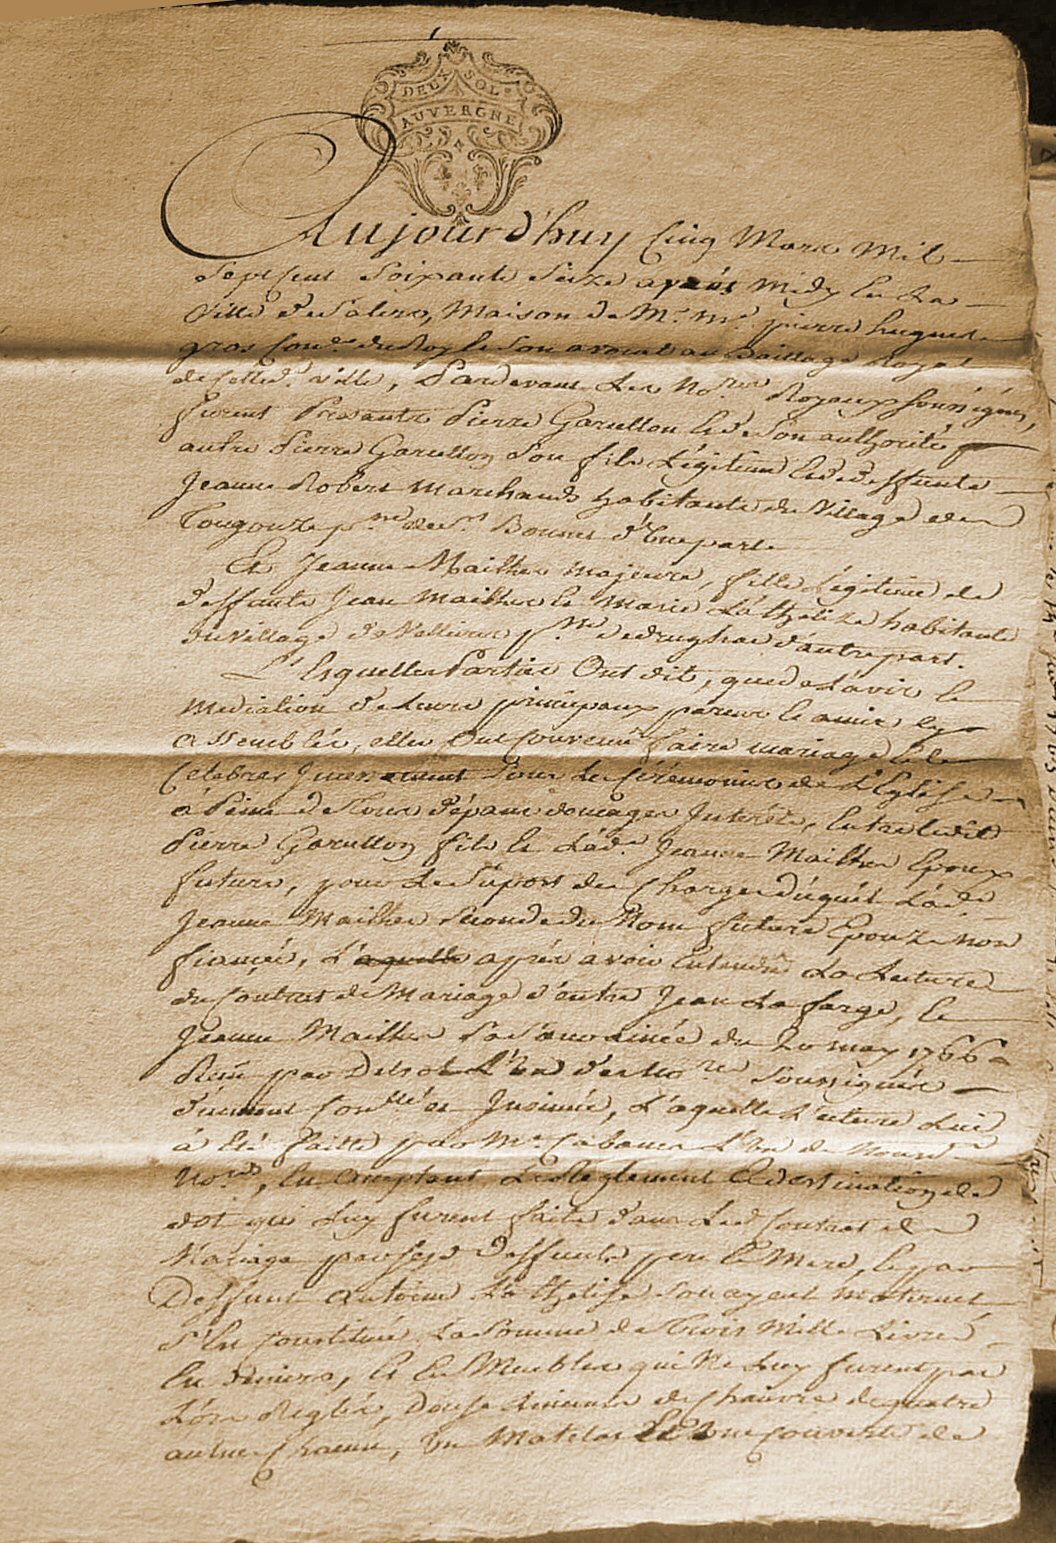 DEUX SOLS
AUVERGNE
Aujourd'huy Cinq Mars Mil
Sept Cent Soixante Seize après Midy En La
Ville de Salers, Maison de Mr. Me. pierre hugues
gros Con.er du Roy Et Son avocat au Bailliage Royal
de Cette d. ville, Pardevant Les No.res Royaux Soussignés,
furent Presants Pierre Garcellon Et de Son authorité
autre Pierre Garcellon Son fils Légitime Et de deffunte
Jeanne Robert Marchands habitants du Village de
p.sse de St. Bonnet d'Une part.
Et Jeanne Mailhes majeure, fille Légitime de
deffunts Jean Mailhes Et Marie habitante
du village de p.sse de d'autre part.
L'Esquelles Parties Ont dit, que de L'avis Et
Mediation de Leurs principaux parens Et amis, Icy
assemblés, elles Ont Convenu faire mariage Et Le
Celebrer Suivant Les Cérémonies de L'Eglise
à Peine de Tous dépans domages Interêts, Entre Ledit
Pierre Garcellon fils Et Lad. Jeanne Mailhes Epoux
futurs, pour Le Suport des Charges duquel Lad.
Jeanne Mailhes Seconde du Nom future Epouze non
fiancée, L'aquelle après avoir Entendu La Lecture
du Contrat de Mariage d'entre Jean La farge, Et
Jeanne Mailhes Sa Sœur Ainée du 20 may 1766
Reçu par L'Un des No.res Soussignés
duement Con.llé et Insinué, L'aquelle Lecture Lui
à Eté faitte par Me. Cabanes L'Un de Nousd.
No.res, En Acceptant Le Reglement Et destination de
dot qui Luy furent faits dans Led. Contrat de
Mariage par Sesd. deffunts pere Et Mere, Et par
Deffunt Antoine Son ayeul maternel
S'Est Constitué La Somme de Trois Mille Livres
En deniers, Et En Meubles qui Ne Luy furent pas
Lors Reglés, Douse Linceuls de Chanvre de quatre
aulnes Chacun, Un Matelas Et Une Couverte de